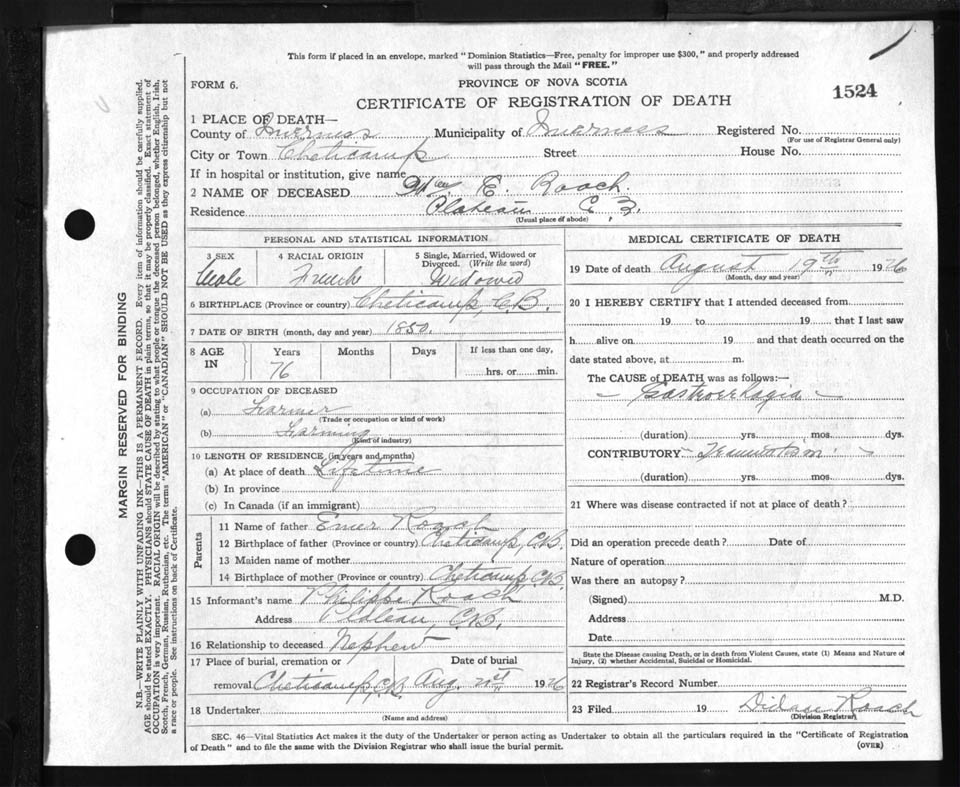 This form if placed in an envelope, marked "Dominion Statistics—Free, penalty for improper use $300," and properly addressed
will pass through the Mail "FREE."
FORM 6.
PROVINCE OF NOVA SCOTIA
1524
CERTIFICATE OF REGISTRATION OF DEATH
1 PLACE OF DEATH—
County of Inverness Municipality of Inverness Registered No.
(For use of Registrar General only)
City or Town Cheticamp Street House No.
If in hospital or institution, give name
2 NAME OF DECEASED E. Roach.
Residence Plateau C.B.
(Usual place of abode)
PERSONAL AND STATISTICAL INFORMATION
3 SEX 4 RACIAL ORIGIN 5 Single, Married, Widowed or Divorced. (Write the word)
Male French Widowed
6 BIRTHPLACE (Province or country) Cheticamp, C.B.
7 DATE OF BIRTH (month, day and year) 1850.
8 AGE IN Years Months Days If less than one day,
76 hrs. or min.
9 OCCUPATION OF DECEASED
(a) Farmer
(Trade or occupation or kind of work)
(b) Farming
(Kind of industry)
10 LENGTH OF RESIDENCE (in years and months)
(a) At place of death Lifetime
(b) In province
(c) In Canada (if an immigrant)
Parents
11 Name of father Roach
12 Birthplace of father (Province or country) Cheticamp, C.B.
13 Maiden name of mother
14 Birthplace of mother (Province or country) Cheticamp, C.B.
15 Informant's name Philippe Roach
Address Plateau, C.B.
16 Relationship to deceased Nephew
17 Place of burial, cremation or Date of burial
removal Cheticamp, C.B. Aug. 21st 1926
18 Undertaker
(Name and address)
MEDICAL CERTIFICATE OF DEATH
19 Date of death August 19th 1926
(Month, day and year)
20 I HEREBY CERTIFY that I attended deceased from
19 to 19 that I last saw
h alive on 19 and that death occurred on the
date stated above, at m.
The CAUSE of DEATH was as follows:—
Gastrorrhagia
(duration) yrs. mos. dys.
CONTRIBUTORY
(duration) yrs. mos. dys.
21 Where was disease contracted if not at place of death?
Did an operation precede death? Date of
Nature of operation
Was there an autopsy?
(Signed) M.D.
Address
Date
State the Disease causing Death, or in death from Violent Causes, state (1) Means and Nature of
Injury, (2) whether Accidental, Suicidal or Homicidal.
22 Registrar's Record Number
23 Filed 19 Roach
(Division Registrar)
SEC. 46—Vital Statistics Act makes it the duty of the Undertaker or person acting as Undertaker to obtain all the particulars required in the "Certificate of Registration
of Death" and to file the same with the Division Registrar who shall issue the burial permit.
(OVER)
MARGIN RESERVED FOR BINDING
N.B.—WRITE PLAINLY WITH UNFADING INK—THIS IS A PERMANENT RECORD. Every item of information should be carefully supplied.
AGE should be stated EXACTLY. PHYSICIANS should STATE CAUSE OF DEATH in plain terms, so that it may be properly classified. Exact statement of
OCCUPATION is very important. RACIAL ORIGIN will be described by stating to what people or tongue the deceased person belonged, whether English, Irish,
Scotch, French, German, Russian, Ruthenian, etc. The terms "AMERICAN" or "CANADIAN" SHOULD NOT BE USED as they express citizenship but not
a race or people. See instructions on back of Certificate.